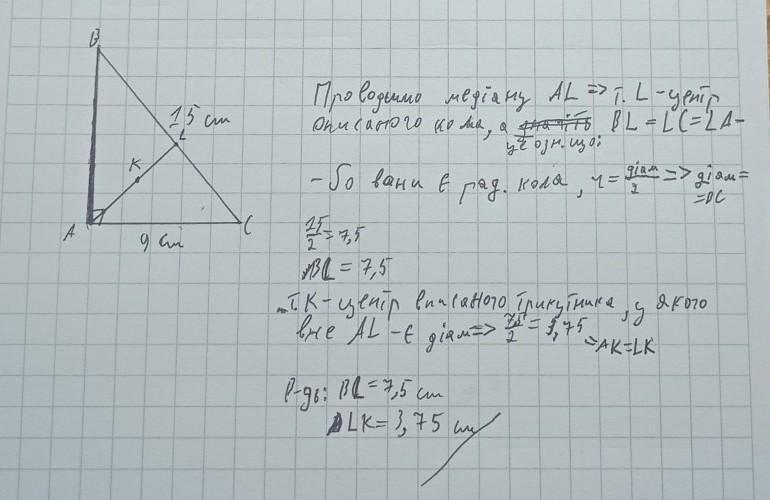 B
15 cm
L
K
A
C
9 cm
Проводимо медіану AL => т. L - центр
описаного кола, а BL = LC = LA -
це озн. що:
- бо вони є рад. кола, r = діам/2 => діам =
= BC
15/2 = 7,5
BL = 7,5
т. K - центр вписаного трикутника, у якого
вже AL - є діам => 7,5/2 = 3,75
=> AK = LK
В-дь: BL = 7,5 cm
LK = 3,75 cm